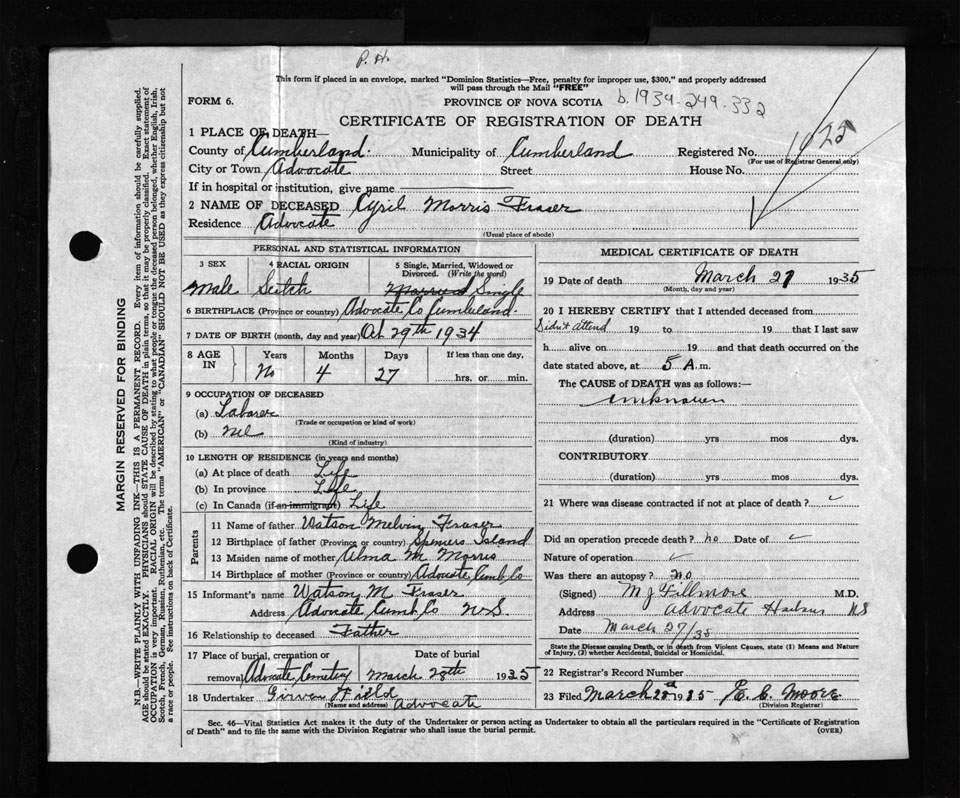 P. H.
This form if placed in an envelope, marked "Dominion Statistics—Free, penalty for improper use, $300," and properly addressed
will pass through the Mail "FREE"
FORM 6. PROVINCE OF NOVA SCOTIA b. 1934-249-332
CERTIFICATE OF REGISTRATION OF DEATH
1 PLACE OF DEATH—
County of Cumberland. Municipality of Cumberland Registered No. 1428
(For use of Registrar General only)
City or Town Advocate Street House No.
If in hospital or institution, give name
2 NAME OF DECEASED Cyril Morris Fraser
Residence Advocate
(Usual place of abode)
PERSONAL AND STATISTICAL INFORMATION
3 SEX 4 RACIAL ORIGIN 5 Single, Married, Widowed or Divorced. (Write the word)
Male Scotch Married Single
6 BIRTHPLACE (Province or country) Advocate Co Cumberland.
7 DATE OF BIRTH (month, day and year) Oct 29th 1934
8 AGE IN Years Months Days If less than one day,
No 4 27 hrs. or min.
9 OCCUPATION OF DECEASED
(a) Laborer
(Trade or occupation or kind of work)
(b) Nil
(Kind of industry)
10 LENGTH OF RESIDENCE (in years and months)
(a) At place of death Life
(b) In province Life
(c) In Canada (if an immigrant) Life
Parents
11 Name of father Watson Melvin Fraser
12 Birthplace of father (Province or country) Spencers Island
13 Maiden name of mother Alma M Morris
14 Birthplace of mother (Province or country) Advocate Cumb Co
15 Informant's name Watson M Fraser
Address Advocate Cumb Co N.S.
16 Relationship to deceased Father
17 Place of burial, cremation or removal Advocate Cemetery Date of burial March 28th 1935
18 Undertaker Girvan Field
(Name and address) Advocate
MEDICAL CERTIFICATE OF DEATH
19 Date of death March 27 1935
(Month, day and year)
20 I HEREBY CERTIFY that I attended deceased from
Didn't attend 19 to 19 that I last saw
h alive on 19 and that death occurred on the
date stated above, at 5 A.m.
The CAUSE of DEATH was as follows:—
unknown
(duration) yrs mos dys.
CONTRIBUTORY
(duration) yrs. mos dys.
21 Where was disease contracted if not at place of death?
Did an operation precede death? no Date of
Nature of operation
Was there an autopsy? no
(Signed) M J Fillmore M.D.
Address Advocate Harbour NS
Date March 27/35
State the Disease causing Death, or in death from Violent Causes, state (1) Means and Nature
of Injury, (2) whether Accidental, Suicidal or Homicidal.
22 Registrar's Record Number
23 Filed March 28th 1935 E. C. Moore
(Division Registrar)
Sec. 46—Vital Statistics Act makes it the duty of the Undertaker or person acting as Undertaker to obtain all the particulars required in the "Certificate of Registration
of Death" and to file the same with the Division Registrar who shall issue the burial permit. (OVER)
MARGIN RESERVED FOR BINDING
N.B.—WRITE PLAINLY WITH UNFADING INK—THIS IS A PERMANENT RECORD. Every item of information should be carefully supplied.
AGE should be stated EXACTLY. PHYSICIANS should STATE CAUSE OF DEATH in plain terms, so that it may be properly classified. Exact statement of
OCCUPATION is very important. RACIAL ORIGIN will be described by stating to what people or tongue the deceased person belonged, whether English, Irish,
Scotch, French, German, Russian, Ruthenian, etc. The terms "AMERICAN" or "CANADIAN" SHOULD NOT BE USED as they express citizenship but not
a race or people. See instructions on back of Certificate.